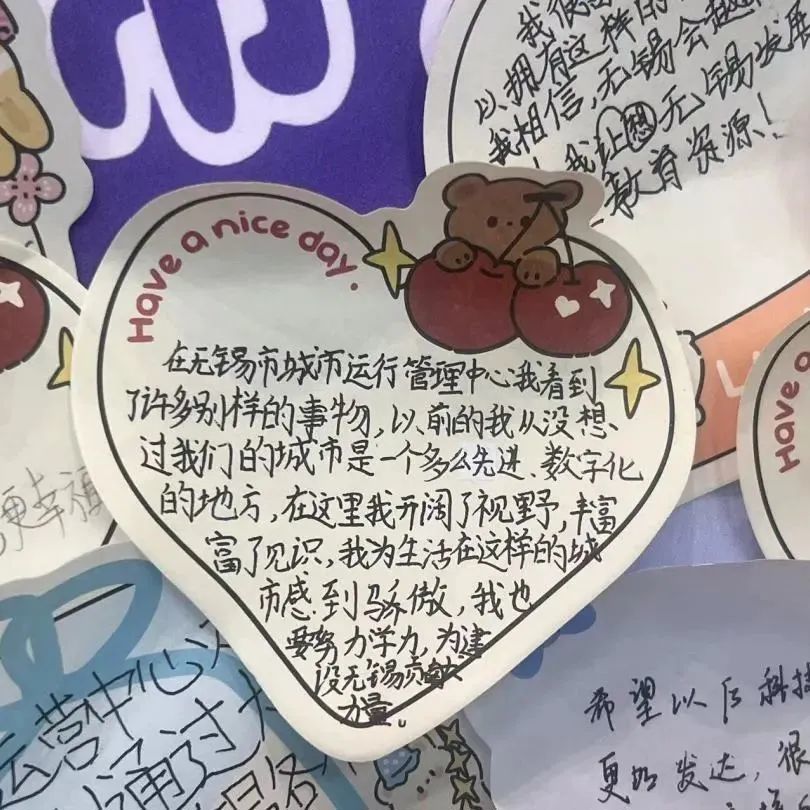 Have a nice day.
在无锡市城市运行管理中心我看到
了许多别样的事物,以前的我从没想
过我们的城市是一个多么先进、数字化
的地方,在这里我开阔了视野,丰富
富了见识,我为生活在这样的城
市感到骄傲,我也
要努力学力,为建
设无锡贡献
力量。
以拥有这样的
我相信,无锡会越
我让想无锡发展
教育资源!
Have a
幸福
运营中心
通过
希望以后科技
更加发达,很